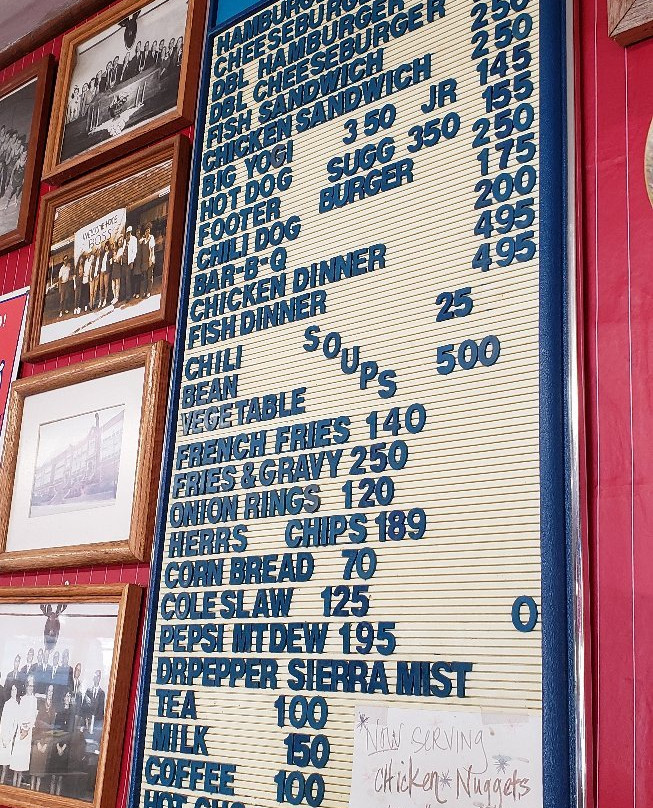 HAMBURGER
CHEESEBURGER
DBL HAMBURGER
DBL CHEESEBURGER
FISH SANDWICH 250
CHICKEN SANDWICH 250
BIG YOGI 350 JR 145
HOT DOG SUGG 350 155
FOOTER BURGER 250
CHILI DOG 175
BAR-B-Q 200
CHICKEN DINNER 495
FISH DINNER 495
CHILI SOUPS 25
BEAN
VEGETABLE 500
FRENCH FRIES 140
FRIES & GRAVY 250
ONION RINGS 120
HERRS CHIPS 189
CORN BREAD 70
COLE SLAW 125 0
PEPSI MT DEW 195
DR PEPPER SIERRA MIST
TEA 100
MILK 150
COFFEE 100
NOW SERVING
CHICKEN NUGGETS
WELCOME HOME
BOSS